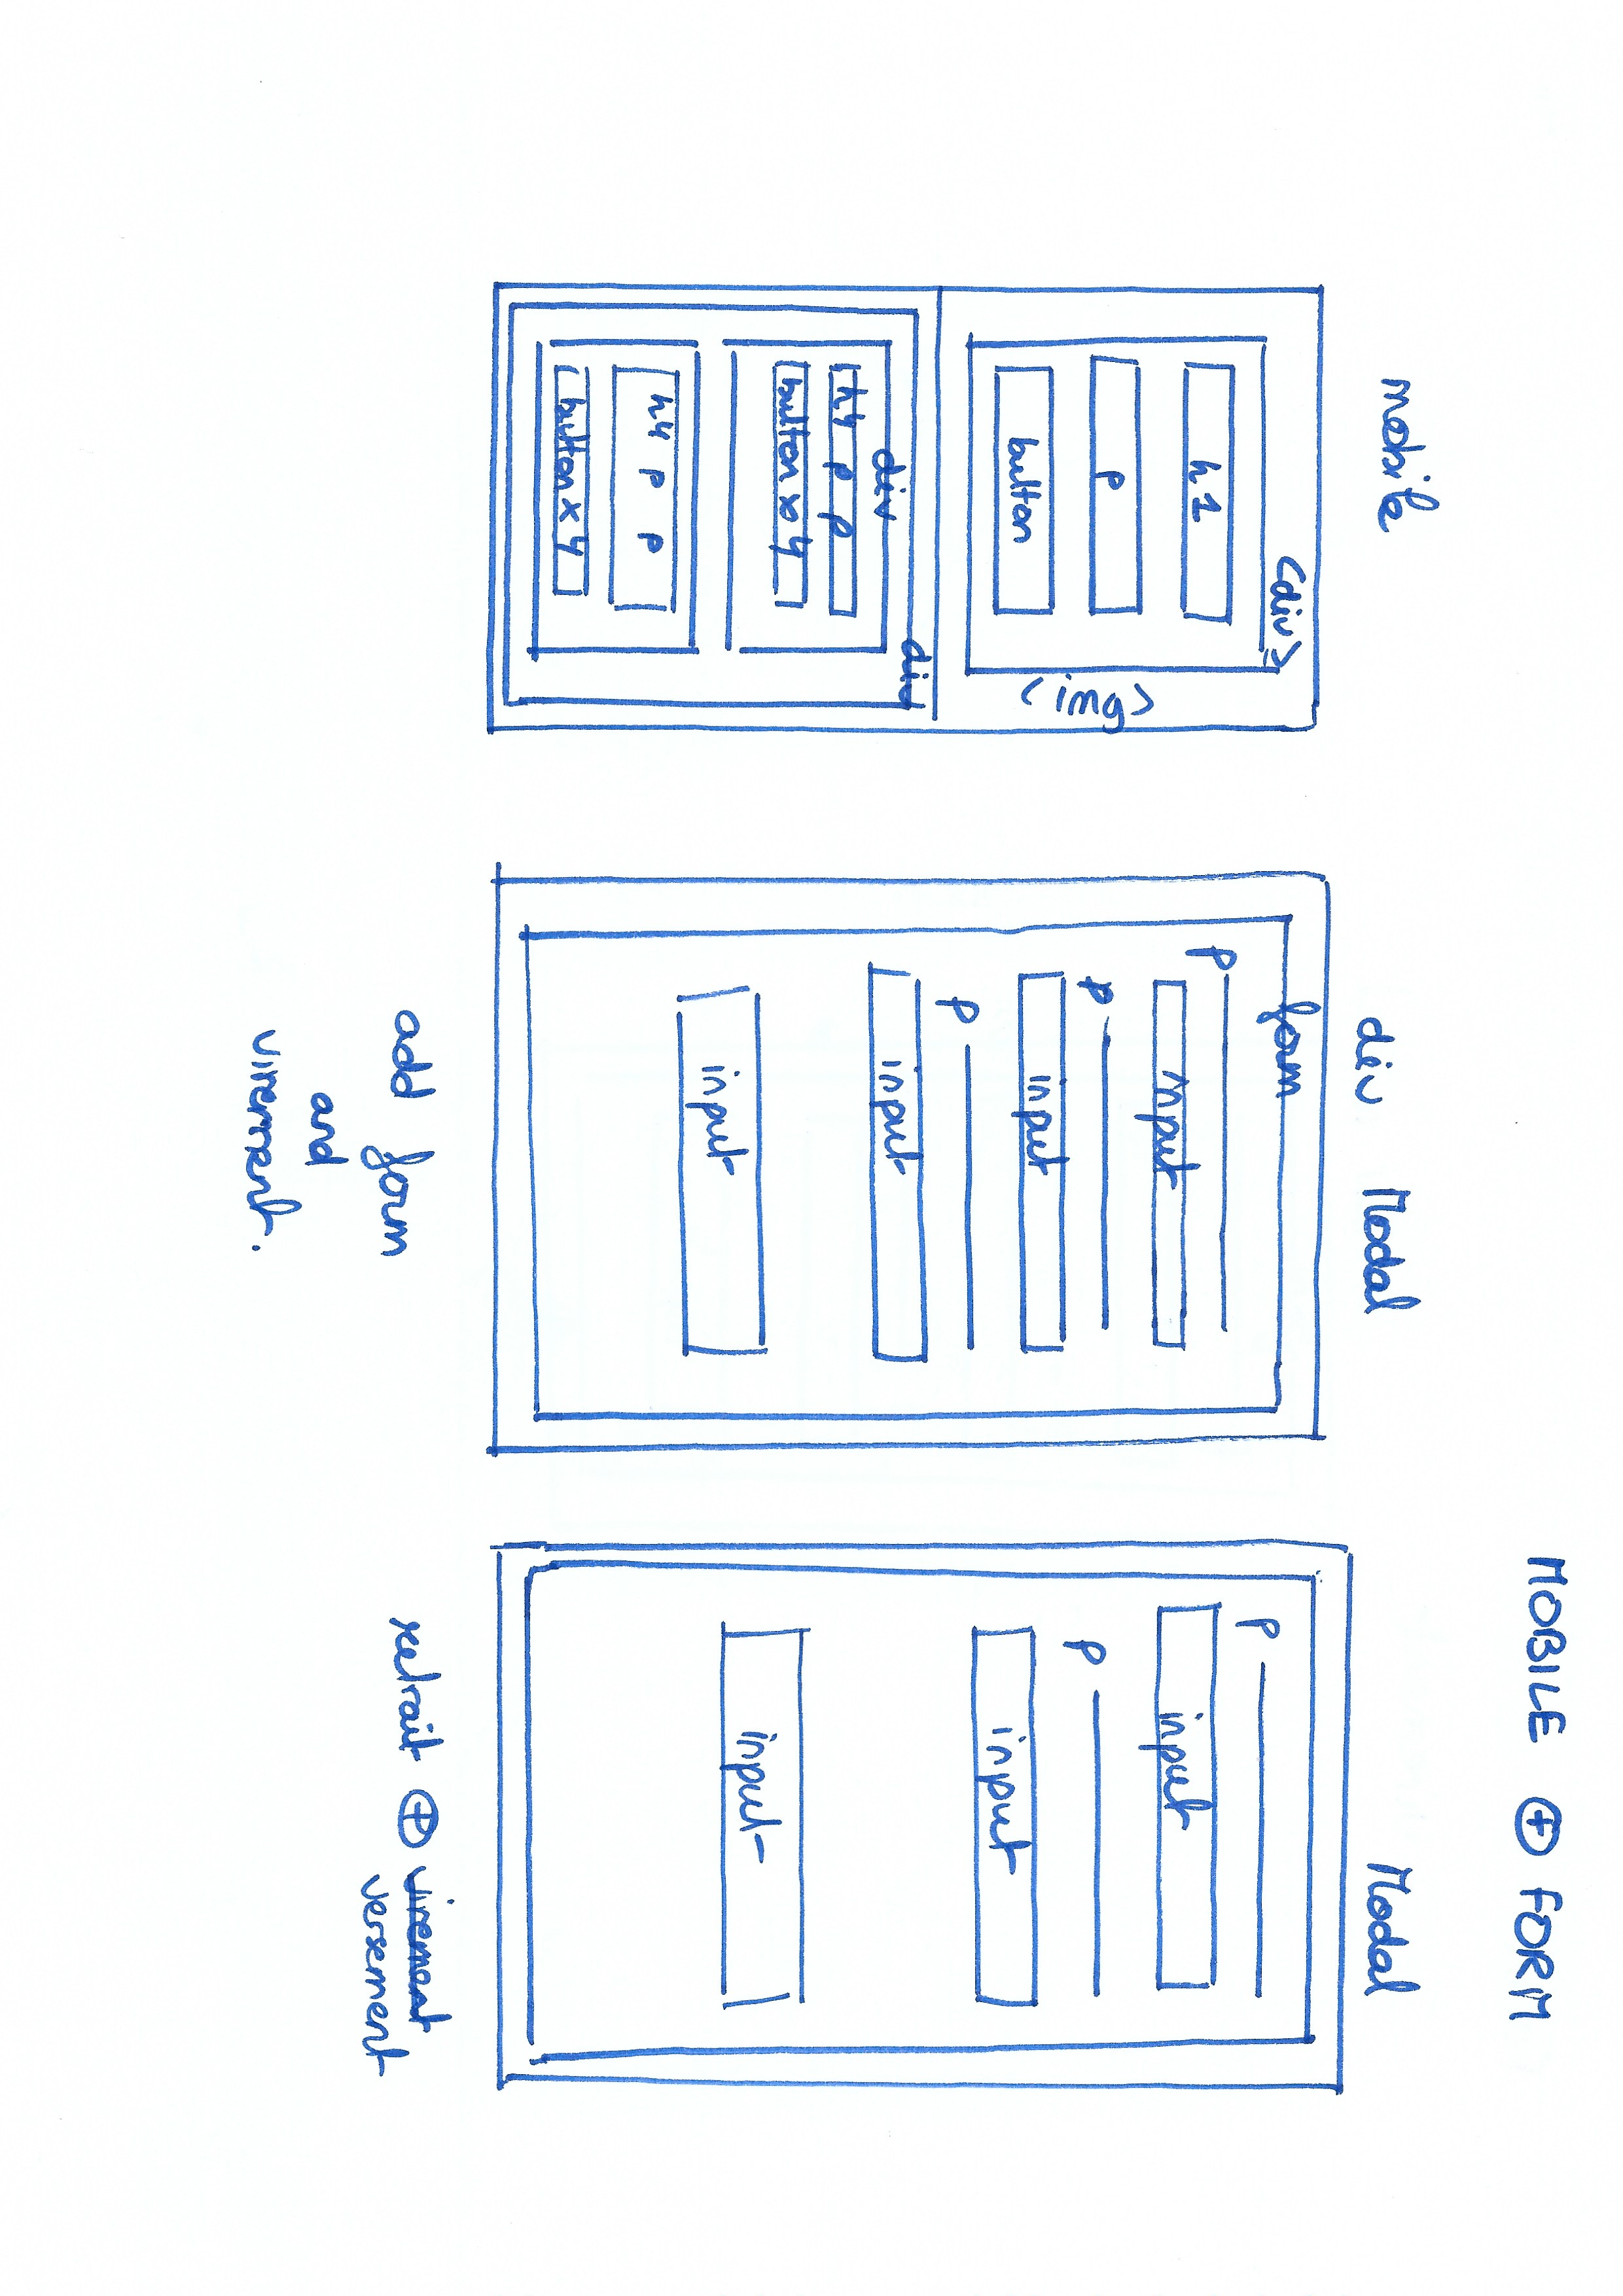 MOBILE + FORM
mobile
<div>
h1
p
button
<img>
div
div
h4 p p
button x 4
h4 p p
button x 4
div Modal
form
p
input
p
input
p
input
input
add form
and
virement.
Modal
p
input
p
input
input
retrait + virement
versement